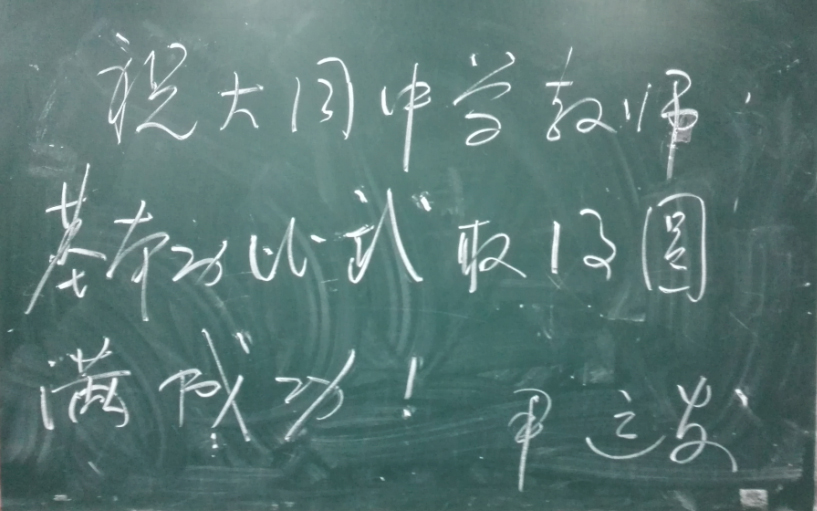 祝大同中学教师
基本功比武取得圆
满成功！
立发